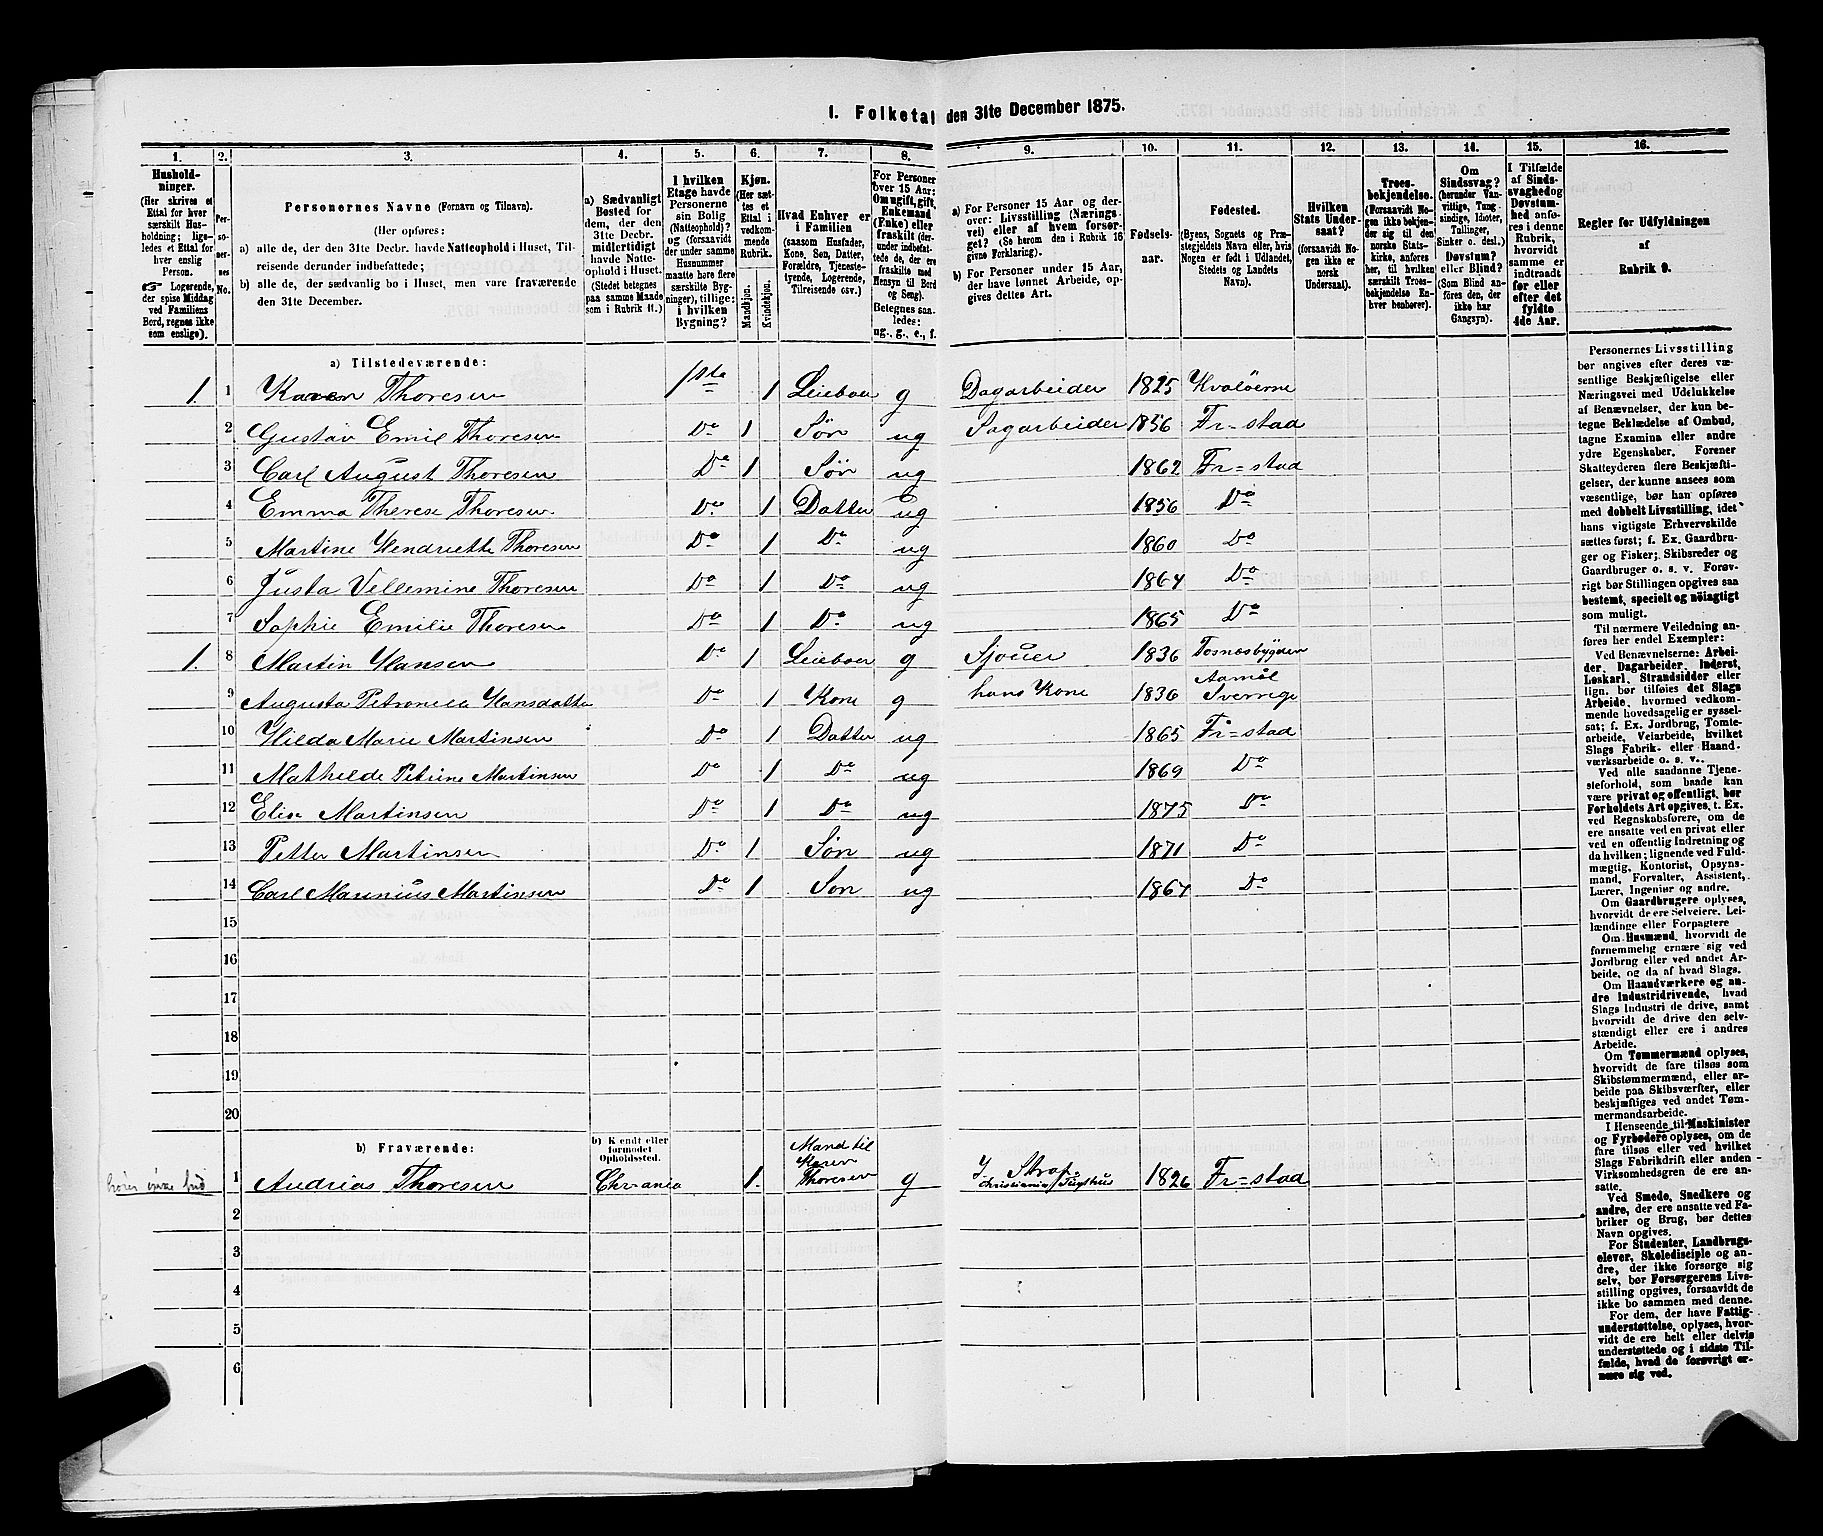 I. Folketal den 31te December 1875.
1. 2. 3. 4. 5. 6. 7. 8. 9. 10. 11. 12. 13. 14. 15. 16.
Husholdninger.
(Her skrives et
Ettal for hver
særskilt Husholdning;
ligeledes et Ettal for
hver enslig
Person.
☞ Logerende,
der spise Middag
ved Familiens
Bord, regnes ikke
som enslige).
Personernes No.
Personernes Navne (Fornavn og Tilnavn).
(Her opføres:
a) alle de, der den 31te Decbr. havde Natteophold i Huset, Tilreisende derunder indbefattede;
b) alle de, der sædvanlig bo i Huset, men vare fraværende
den 31te December.
a) Sædvanligt
Bosted for
dem, der den
31te Decbr.
midlertidigt
havde Natteophold i Huset.
(Stedet betegnes
paa samme Maade
som i Rubrik 11.)
I hvilken
Etage havde
Personerne
sin Bolig
(Natteophold)?
og (forsaavidt
der under samme
Husnummer
maatte høre flere
særskilte Bygninger), tillige:
i hvilken
Bygning?
Kjøn.
(Her sættes et
Ettal i
vedkommende
Rubrik.
Mandkjøn.
Kvindekjøn.
Hvad Enhver er
i Familien
(saasom Husfader,
Kone, Søn, Datter,
Forældre, Tjenestetyende, Logerende,
Tilreisende osv.)
For Personer
over 15 Aar:
Om ugift, gift,
Enkemand
(Enke) eller
fraskilt (derunder indbefattede de, der ere
fraskilte med
Hensyn til Bord
og Seng).
Betegnes saaledes:
ug., g., e., f.
a) For Personer 15 Aar og derover: Livsstilling (Næringsvei) eller af hvem forsørget? (Se herom den i Rubrik 16
givne Forklaring).
b) For Personer under 15 Aar,
der have lønnet Arbeide, opgives dettes Art.
Fødselsaar.
Fødested.
(Byens, Sognets og Præstegjeldets Navn eller, hvis
Nogen er født i Udlandet,
Stedets og Landets
Navn).
Hvilken
Stats Undersaat?
(forsaavidt Nogen ikke er
norsk
Undersaat).
Troesbekjendelse.
(Forsaavidt Nogen ikke bekjender sig til den
norske Statskirke, anføres
her, til hvilken
særskilt Troesbekjendelse Enhver benhører).
Om
Sindssvag?
(herunder Vanvittige, Tungsindige, Idioter,
Tullinger,
Sinker o. desl.)
Døvstum?
eller Blind?
(Som Blind anføres den, der
ikke har
Gangsyn).
I Tilfælde
af Sindssvaghed og
Døvstumhed anføres i denne
Rubrik,
hvorvidt
samme er
indtraadt
før eller
efter det
fyldte
4de Aar.
Regler for Udfyldningen
af
Rubrik 9.
a) Tilstedeværende:
1. 1 Karen Thoresen 1ste 1 Leieboer g Dagarbeider 1825 Kvaløerne
2 Gustav Emil Thoresen Do 1 Søn ug Sagarbeider 1856 Fr=stad
3 Carl August Thoresen Do 1 Søn ug 1862 Fr=stad
4 Emma Therese Thoresen Do 1 Datter ug 1856 Do
5 Martine Hendriette Thoresen Do 1 Do ug 1860 Do
6 Justa Vellemine Thoresen Do 1 Do ug 1864 Do
7 Sophie Emilie Thoresen Do 1 Do ug 1865 Do
1. 8 Martin Hansen Do 1 Leieboer g Sjouer 1836 Tosnæsbygden
9 Augusta Petronela Hansdatter Do 1 Kone g hans Kone 1836 Aamöl Sverrige
10 Hilda Marie Martinsen Do 1 Datter ug 1865 Fr=stad
11 Mathilde Petrine Martinsen Do 1 Do ug 1869 Do
12 Elise Martinsen Do 1 Do ug 1875 Do
13 Petter Martinsen Do 1 Søn ug 1871 Do
14 Carl Marinius Martinsen Do 1 Søn ug 1867 Do
15
16
17
18
19
20
b) Fraværende:
b) Kendt eller
formodet
Opholdssted.
1 Andrias Thoresen Chr.ania 1. Mand til Karen Thoresen g I Straf Christiania Tugthus 1826 Fr=stad
2
3
4
5
6
Personernes Livsstilling
bør angives efter deres væsentlige Beskjæftigelse eller
Næringsvei med Udelukkelse
af Benævnelser, der kun betegne Beklædelse af Ombud,
tagne Examina eller andre
ydre Egenskaber. Forener
Skatteyderen flere Beskjæftigelser, der kunne ansees som
væsentlige, bør han opføres
med dobbelt Livsstilling, idet
hans vigtigste Erhvervskilde
sættes først; f. Ex. Gaardbruger og Fisker; Skibsreder og
Gaardbruger o. s. v. Forøvrigt bør Stillingen opgives saa
bestemt, specielt og nöiagtigt
som muligt.
Til nærmere Veiledning anføres her endel Exempler:
Ved Benævnelserne: Arbeider, Dagarbeider, Inderst,
Løskarl, Strandsidder eller
lign. bør tilføies det Slags
Arbeide, hvormed vedkommende hovedsagelig er sysselsat; f. Ex. Jordbrug, Tomtearbeide, Veiarbeide, hvilket
Slags Fabrik- eller Haandværksarbeide o. s. v..
Ved alle saadanne Tjenesteforhold, som baade kan
være privat og offentligt, bør
Forholdets Art opgives, t. Ex.
ved Regnskabsførere, om de
ere ansatte ved en privat eller
ved en offentlig Indretning og
da hvilken; lignende ved Fuldmægtig, Kontorist, Opsynsmand, Forvalter, Assistent,
Lærer, Ingeniør og andre.
Om Gaardbrugere oplyses,
hvorvidt de ere Selveiere, Leilændinge eller Forpagtere
Om Husmænd, hvorvidt de
fornemmelig ernære sig ved
Jordbrug eller ved andet Arbeide, og da af hvad Slags.
Om Haandværkere og andre Industridrivende, hvad
Slags Industri de drive, samt
hvorvidt de drive den selvstændigt eller ere i andres
Arbeide.
Om Tømmermænd oplyses,
hvorvidt de fare tilsøs som
Skibstømmermænd, eller arbeide paa Skibsværfter, eller
beskjæftiges ved andet Tømmermandsarbeide.
I Henseende til Maskinister
og Fyrbødere oplyses, om de
fare tilsøs eller ved hvilket
Slags Fabrikdrift eller anden
Virksomhedsgren de ere ansatte.
Ved Smede, Snedkere og
andre, der ere ansatte ved Fabriker og Brug, bør dettes
Navn opgives.
For Studenter, Landbrugselever, Skoledisciple og andre, der ikke forsørge sig
selv, bør Forsørgerens Livsstilling opgives, forsaavidt de
ikke bo sammen med denne.
For dem, der have Fattigunderstøttelse, oplyses, hvorvidt de ere helt eller delvis
understøttede og i sidste Tilfælde, hvad de forøvrigt ernære sig ved.